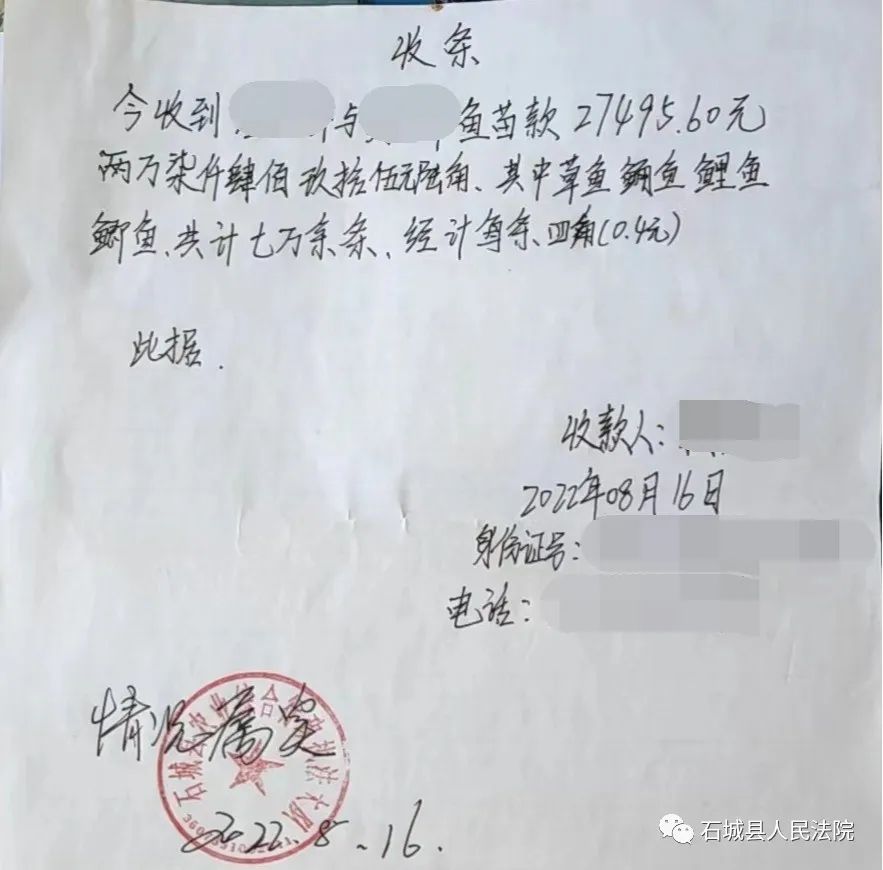 收条
今收到 与 鱼苗款27495.60元
两万柒仟肆佰玖拾伍元陆角、其中草鱼鳙鱼鲤鱼
鲫鱼、共计七万余条、经计每条、四角(0.4元)
此据.
收款人:
2022年08月16日
身份证号:
电话:
情况属实
石城县农业综合行政执法大队
2022.8.16.
石城县人民法院